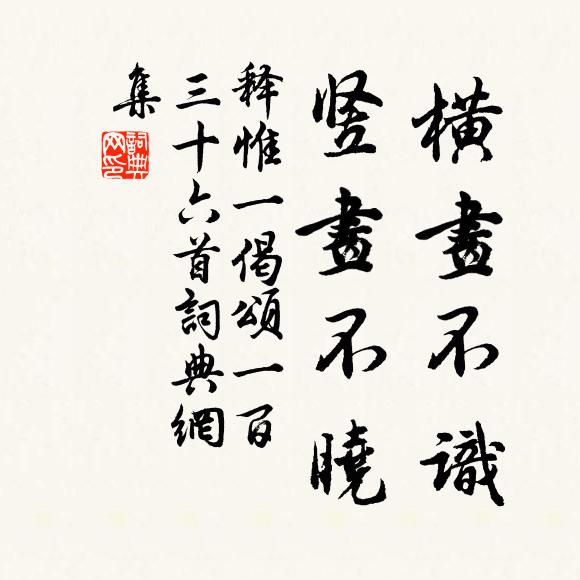 橫畫不識
竖畫不曉
释惟一偈頌一百
三十六首詞典網
集
詞典
网印